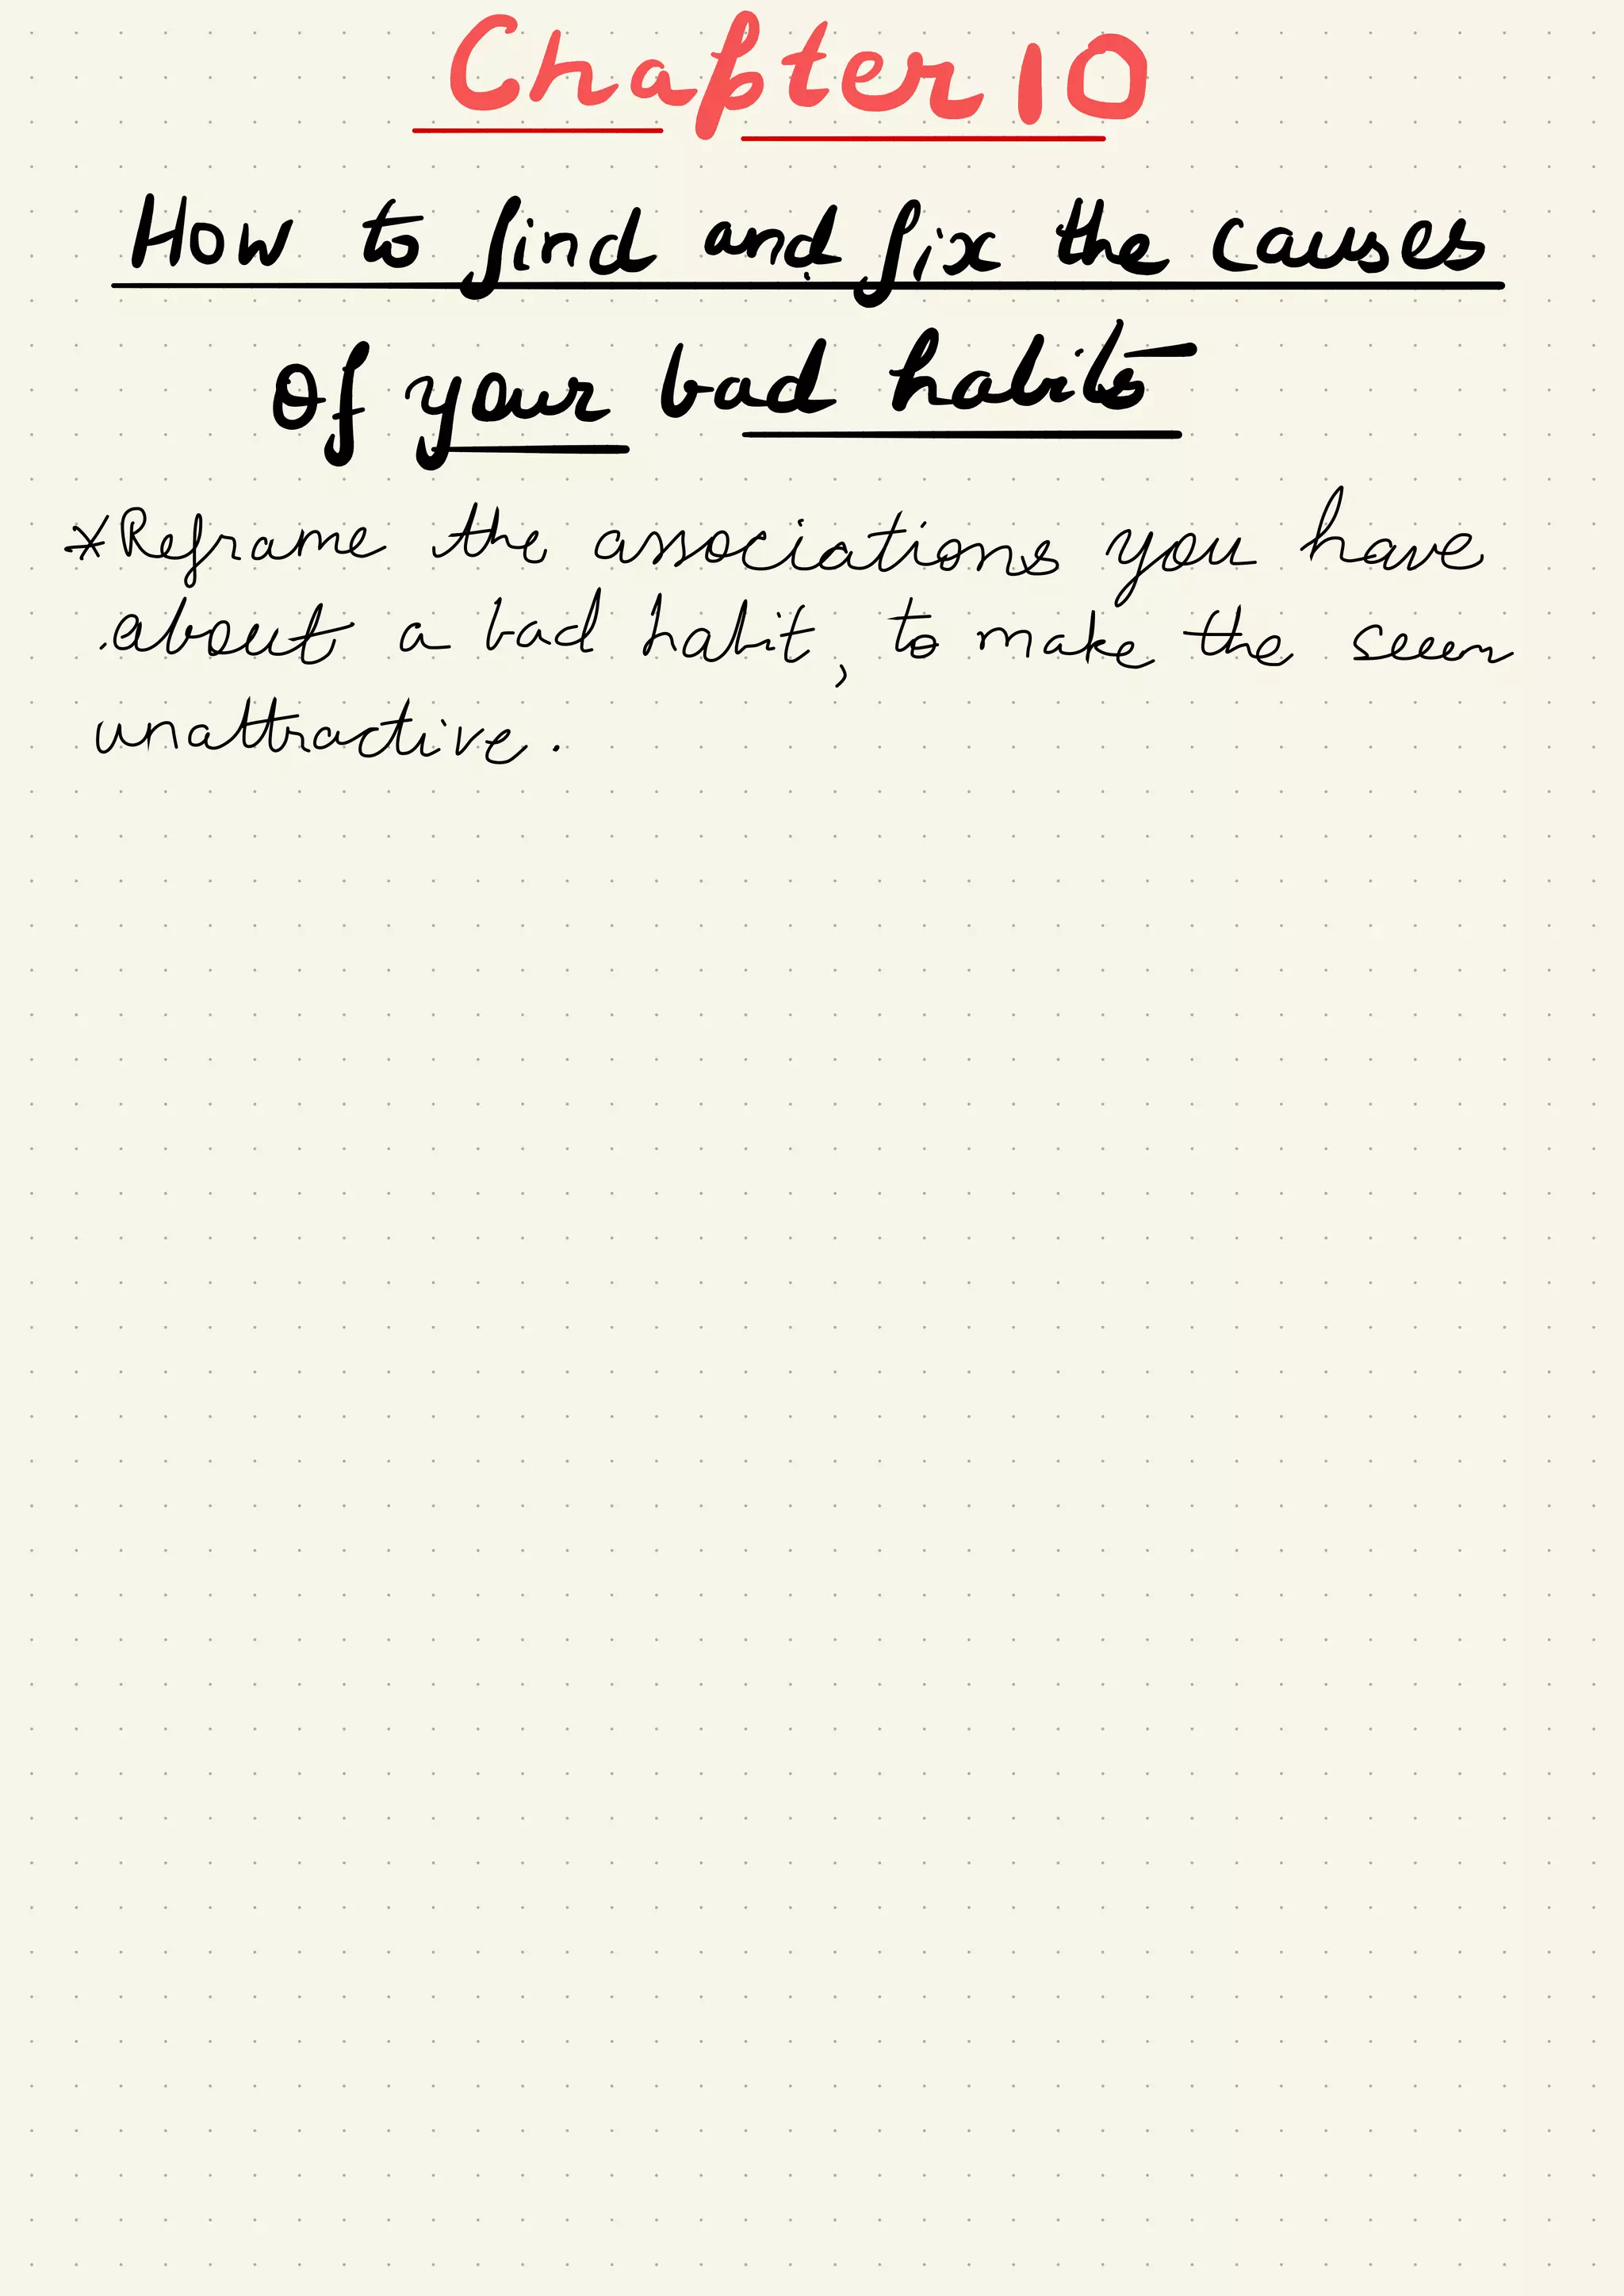 Chapter 10
How to find and fix the causes
of your bad habits
*Reframe the associations you have
about a bad habit, to make the seem
unattractive.